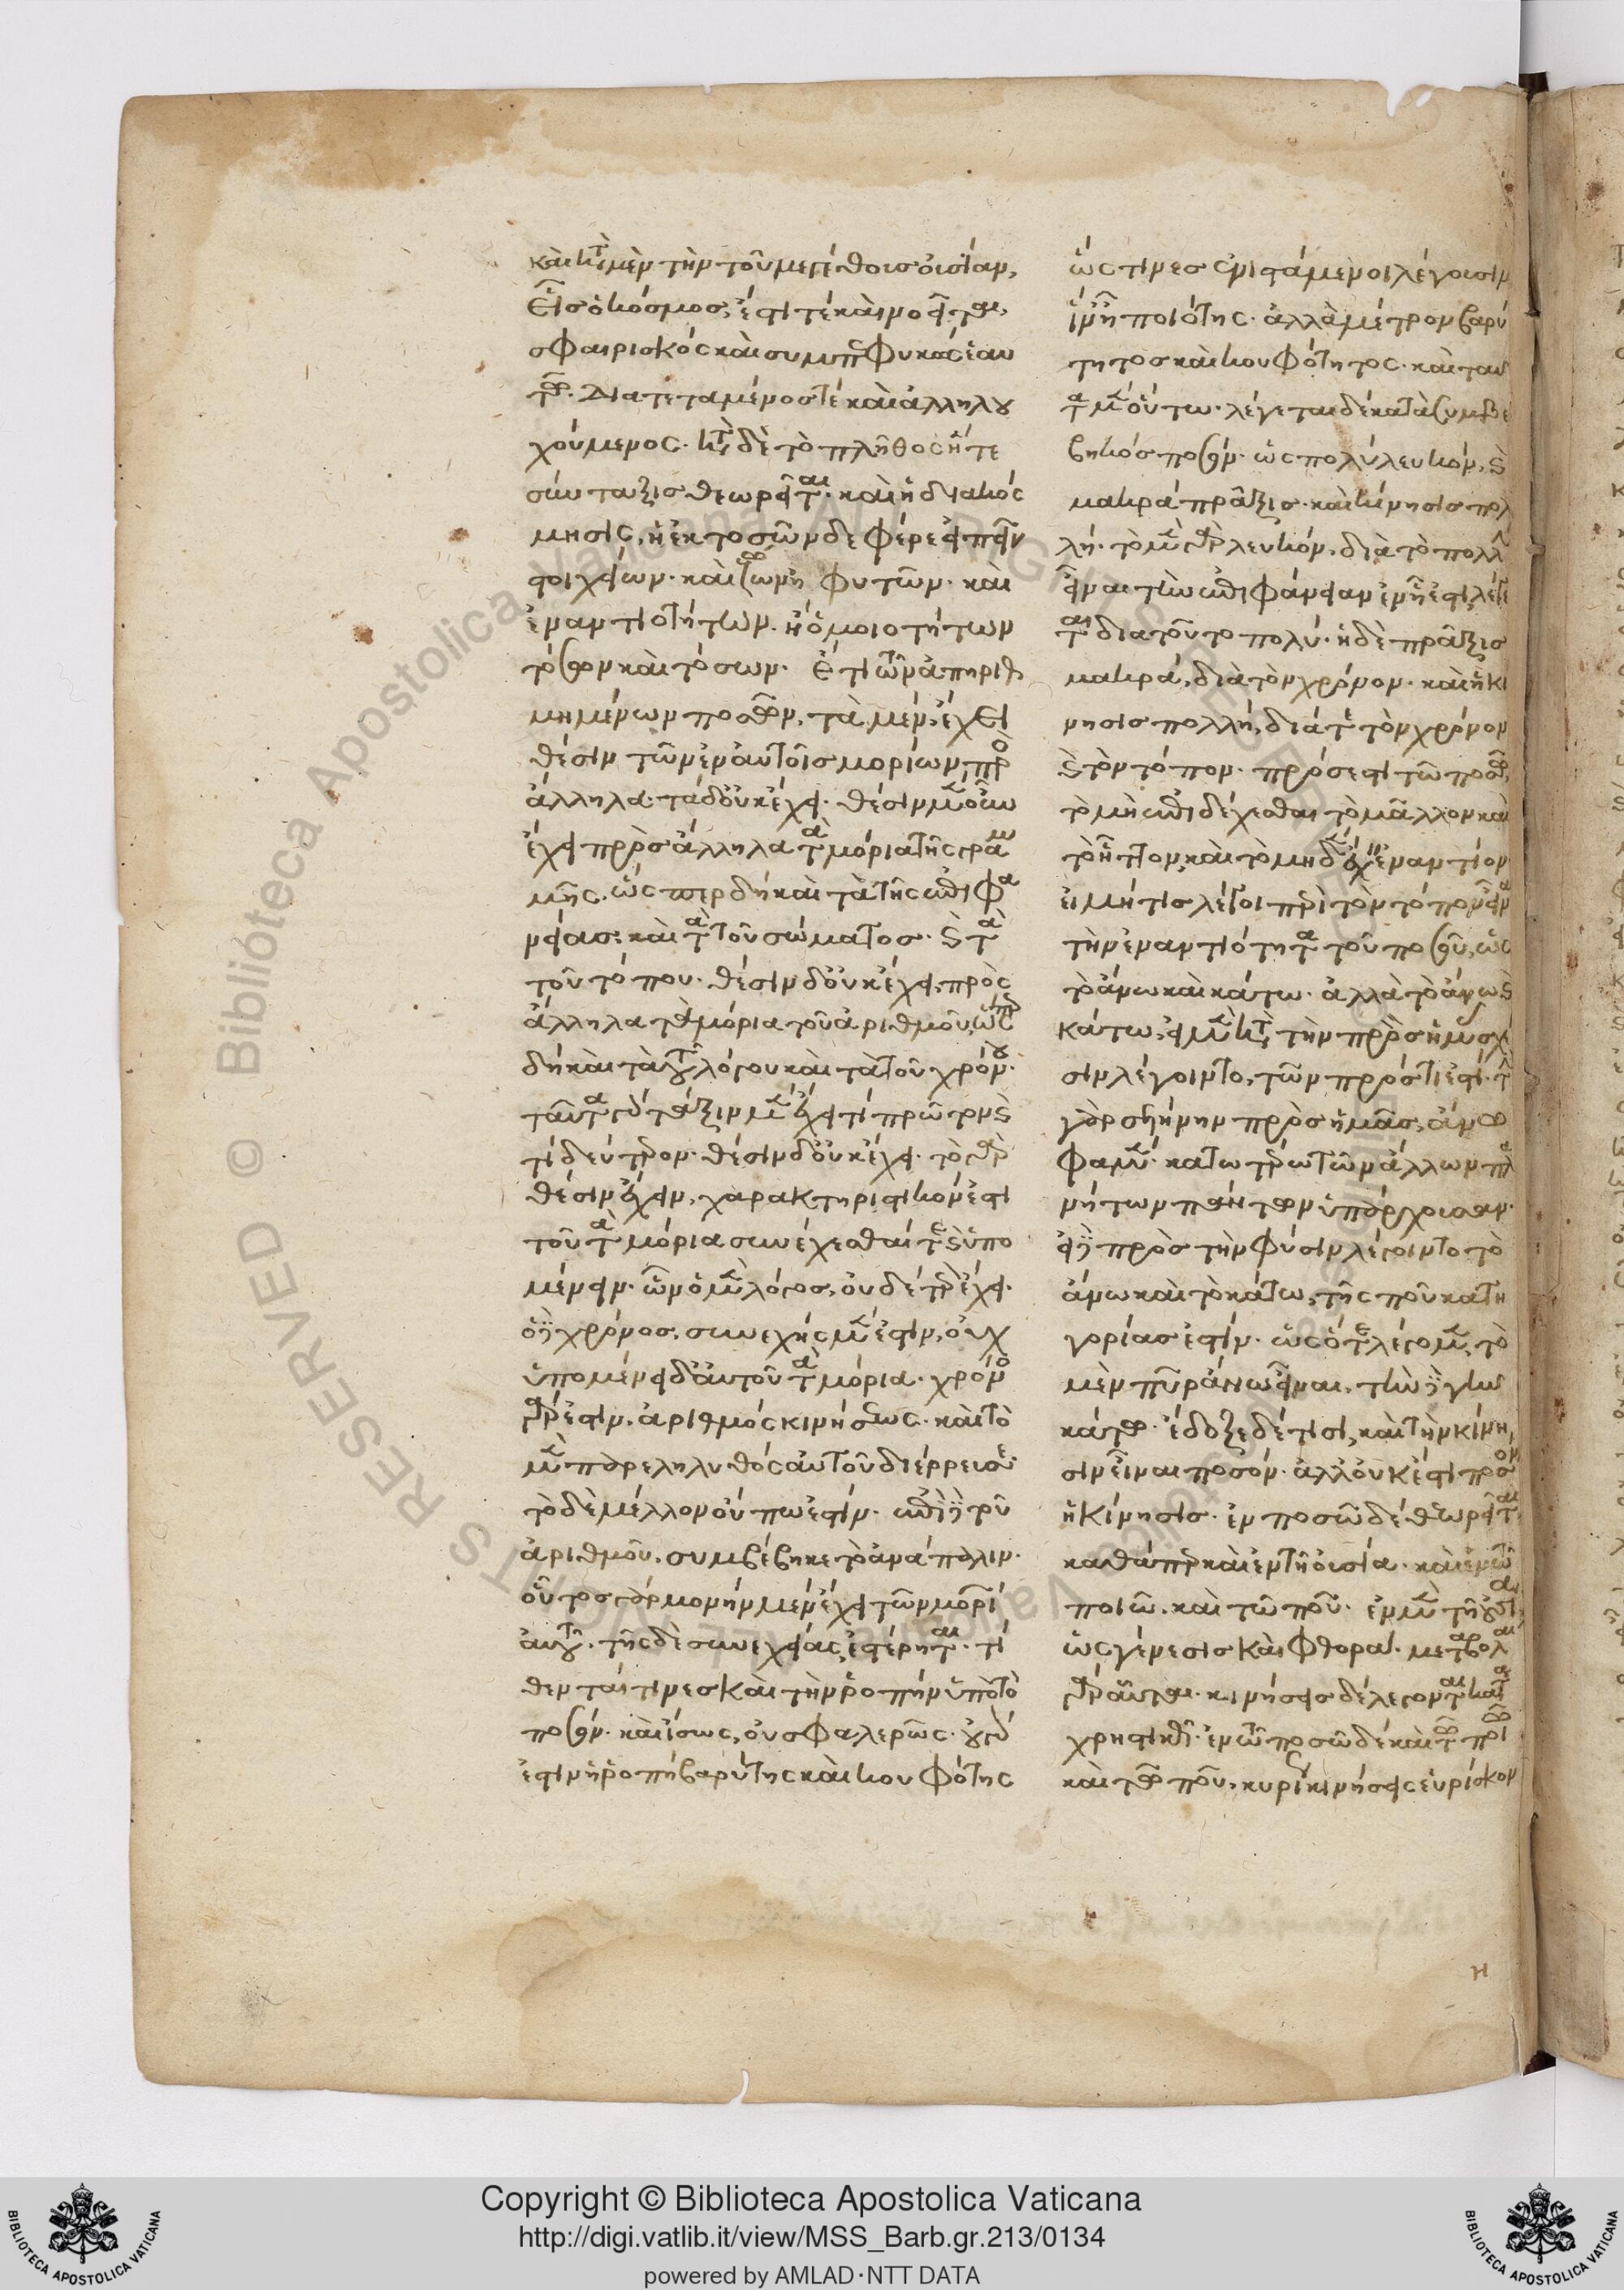 καὶ κατὰ μὲν τὴν τοῦ μεγέθους οὐσίαν,
εἷς ὁ κόσμος, ἐστί τε καὶ νοεῖται,
σφαιρικὸς καὶ συμπεφυκὼς ἑαυ
τῷ. διατεταμένος τε καὶ ἀλληλου
χούμενος. κατὰ δὲ τὸ πλῆθος ἥ τε
σύνταξις θεωρεῖται. καὶ ἡ διακόσ
μησις, ἡ ἐκ τοσῶνδε φέρε εἰπεῖν
στοιχείων. καὶ ζώων ἢ φυτῶν. καὶ
ἐναντιοτήτων. ἢ ὁμοιοτήτων
τόσων καὶ τόσων. ἔτι τῶν ἀπηριθ
μημένων ποσῶν, τὰ μὲν, ἔχει
θέσιν τῶν ἐν αὐτοῖς μορίων πρὸς
ἄλληλα· τὰ δ' οὐκ ἔχει. θέσιν μὲν οὖν
ἔχει πρὸς ἄλληλα τὰ μόρια τῆς γραμ
μῆς. ὥσπερ δὴ καὶ τὰ τῆς ἐπιφα
νείας· καὶ τὰ τοῦ σώματος. καὶ τὰ
τοῦ τόπου. θέσιν δ' οὐκ ἔχει πρὸς
ἄλληλα τὰ μόρια τοῦ ἀριθμοῦ, ὥσπερ
δὴ καὶ τὰ τοῦ λόγου καὶ τὰ τοῦ χρόνου.
ταῦτα γὰρ τάξιν μὲν ἔχει τί πρῶτον καὶ
τί δεύτερον. θέσιν δ' οὐκ ἔχει. τὸ γὰρ
θέσιν ἔχειν, χαρακτηριστικόν ἐστι
τοῦ τὰ μόρια συνέχεσθαί τε καὶ ὑπο
μένειν. ὧν ὁ μὲν λόγος, οὐδέτερον ἔχει.
ὁ δὲ χρόνος, συνεχὴς μέν ἐστιν, οὐχ
ὑπομένει δ' αὐτοῦ τὰ μόρια. χρόνος
γάρ ἐστιν, ἀριθμὸς κινήσεως. καὶ τὸ
μὲν παρεληλυθὸς αὐτοῦ διέρρευσε·
τὸ δὲ μέλλον οὔπω ἐστίν. ἐπὶ δὲ τοῦ
ἀριθμοῦ, συμβέβηκε τὸ ἀνάπαλιν.
οὗτος γὰρ μονὴν μὲν ἔχει τῶν μορίων
αὐτοῦ. τῆς δὲ συνεχείας, ἐστέρηται. τί
θενται τινες καὶ τὴν ῥοπὴν ὑπὸ τὸ
ποσόν. καὶ ἴσως, οὐ σφαλερῶς. οὐ γὰρ
ἐστιν ἡ ῥοπὴ βαρύτης καὶ κουφότης
ὥς τινες ἐνιστάμενοι λέγουσιν
ἵν' ᾖ ποιότης. ἀλλὰ μέτρον βαρύ
τητος καὶ κουφότητος. καὶ ταῦ
τα μὲν οὕτω. λέγεται δὲ κατὰ συμβε
βηκὸς ποσόν. ὡς πολὺ λευκόν, καὶ
μακρὰ πρᾶξις. καὶ κίνησις πολ
λή. τὸ μὲν γὰρ λευκόν, διὰ τὸ πολλὴν
εἶναι τὴν ἐπιφάνειαν ἐν ᾗ ἐστι, λέγε
ται διὰ τοῦτο πολύ. ἡ δὲ πρᾶξις
μακρά, διὰ τὸν χρόνον. καὶ ἡ κί
νησις πολλή, διά τε τὸν χρόνον
καὶ τὸν τόπον. πρόσεστι τῷ ποσῷ,
τὸ μὴ ἐπιδέχεσθαι τὸ μᾶλλον καὶ
τὸ ἧττον, καὶ τὸ μηδὲν ἔχειν ἐναντίον
εἰ μή τις λέγοι περὶ τὸν τόπον εἶναι
τὴν ἐναντιότητα τοῦ ποσοῦ, ὡς
τὸ ἄνω καὶ κάτω. ἀλλὰ τὸ ἄνω καὶ
κάτω, εἰ μὲν κατὰ τὴν πρὸς ἡμᾶς σχέ
σιν λέγοιντο, τῶν πρός τί ἐστι. τὰ
γὰρ σκήνην πρὸς ἡμᾶς, ἄνω
φαμέν. κάτω τῶν ἄλλων πλα
νήτων πάντων ὑπάρχουσαν.
εἰ δὲ πρὸς τὴν φύσιν λέγοιντο τὸ
ἄνω καὶ τὸ κάτω, τῆς ποῦ κατη
γορίας ἐστίν. ὡς ὅτε λέγομεν, τὸ
μὲν πῦρ ἄνω εἶναι, τὴν δὲ γῆν
κάτω. ἔδοξε δέ τισι, καὶ τὴν κίνη
σιν εἶναι ποσόν. ἀλλ' οὐκ ἔστι ποσὸν
ἡ κίνησις. ἐν ποσῷ δὲ θεωρεῖται,
καθάπερ καὶ ἐν τῇ οὐσίᾳ. καὶ ἐν τῷ
ποιῷ. καὶ τῷ ποῦ. ἐν μὲν τῇ οὐσίᾳ
ὡς γένεσις καὶ φθορά. μεταβολαὶ
γὰρ αὗται. κινήσεις δὲ λέγονται κατα
χρηστικῶς. ἐν τῷ ποσῷ δὲ καὶ τῷ ποιῷ
καὶ τῷ ποῦ, κυρίως κινήσεις εὑρίσκον
η
Copyright © Biblioteca Apostolica Vaticana
http://digi.vatlib.it/view/MSS_Barb.gr.213/0134
powered by AMLAD·NTT DATA